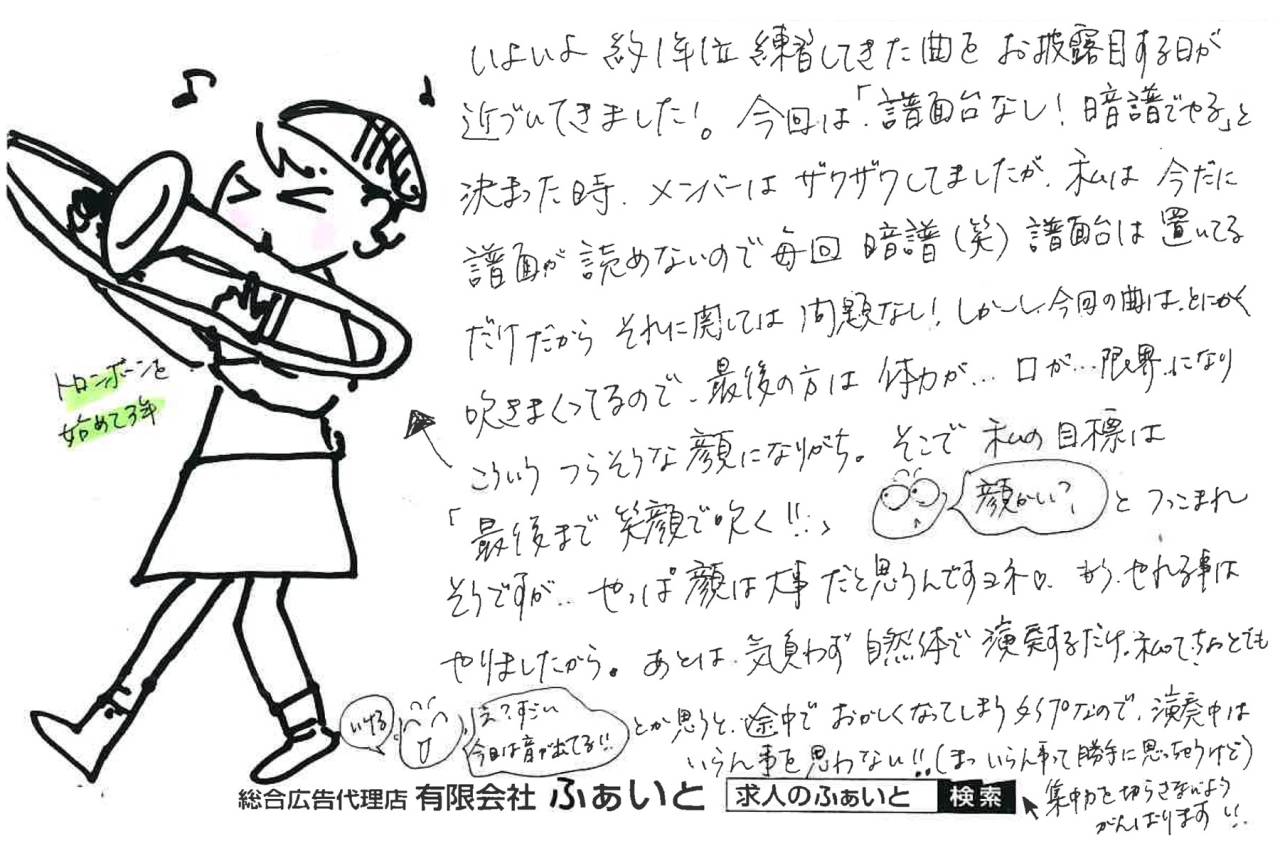 いよいよ 約1年位 練習してきた曲を お披露目する日が
近づいてきました!。今回は「譜面台なし!暗譜でやる」と
決まった時、メンバーは ザワザワしてましたが、私は 今だに
譜面が 読めないので 毎回 暗譜(笑)譜面台は 置いてる
だけだから それに関しては 問題なし!しかーし、今回の曲は、とにかく
吹きまくってるので、最後の方は 体力が… 口が… 限界、になり
こういう つらそうな 顔になりがち。そこで 私の目標は
「最後まで 笑顔で吹く!!」 顔かい? と つっこまれ
そうですが… やっぱ 顔は大事 だと思うんですヨネ♡。もう、やれる事は
やりましたから。あとは、気負わず 自然体で 演奏するだけ。私って、ちょっとでも
いける
え?すごい
今日は音が出てる!!
とか思うと、途中で おかしくなってしまう タイプなので、演奏中は
いらん事を 思わない!!(まっ いらん事って 勝手に 思っちゃうけど)
集中力を切らさないよう
がんばります!!
トロンボーンを
始めて3年
総合広告代理店 有限会社 ふぁいと 求人のふぁいと 検索